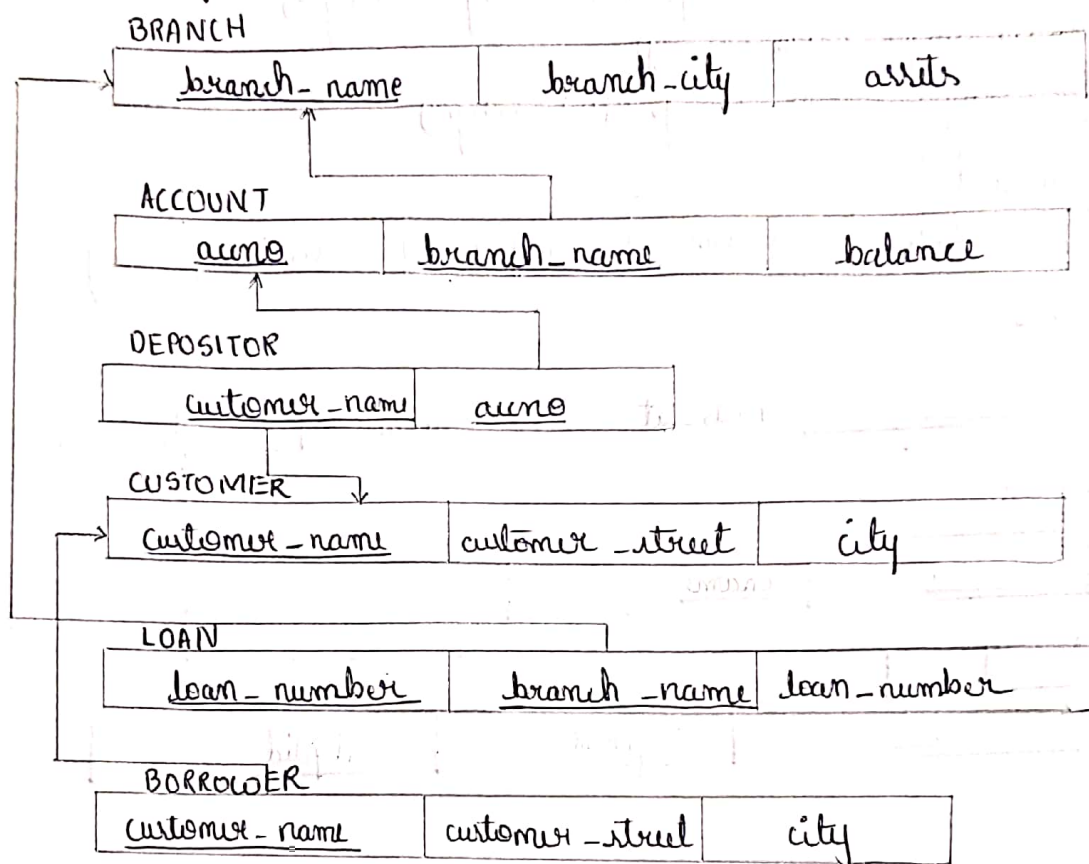 BRANCH
branch_name branch_city assets
ACCOUNT
accno branch_name balance
DEPOSITOR
customer_name accno
CUSTOMER
customer_name customer_street city
LOAN
loan_number branch_name loan_number
BORROWER
customer_name customer_street city